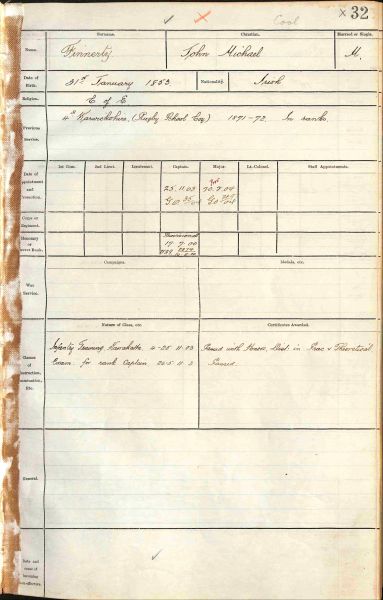 Cool
× 32
Surname.
Christian.
Married or Single.
Name.
Finnerty
John Michael
M.
Date of Birth.
31st January 1853
Nationality.
Irish
Religion.
C of E
Previous Service.
4th Warwickshire, (Rugby School Coy) 1871-72. In ranks
1st Lieut.
2nd Lieut.
Lieutenant.
Captain.
Major.
Lt.-Colonel.
Staff Appointments.
Date of Appointment and Promotion.
25.11.03
20.9.04
G.O.
G.O.
Corps or Regiment.
Honorary or Brevet Rank.
Provisional
17.7.00
Campaigns.
Medals, etc.
War Service.
Nature of Class, etc.
Certificates Awarded.
Classes of Instruction, Examination, Etc.
Infantry Training, Karrakatta, 4-25.11.03
Passed with Honors, Dist. in Prac & Theoretical
Exam. for rank Captain
Passed
General.
Date and cause of becoming non-effective.